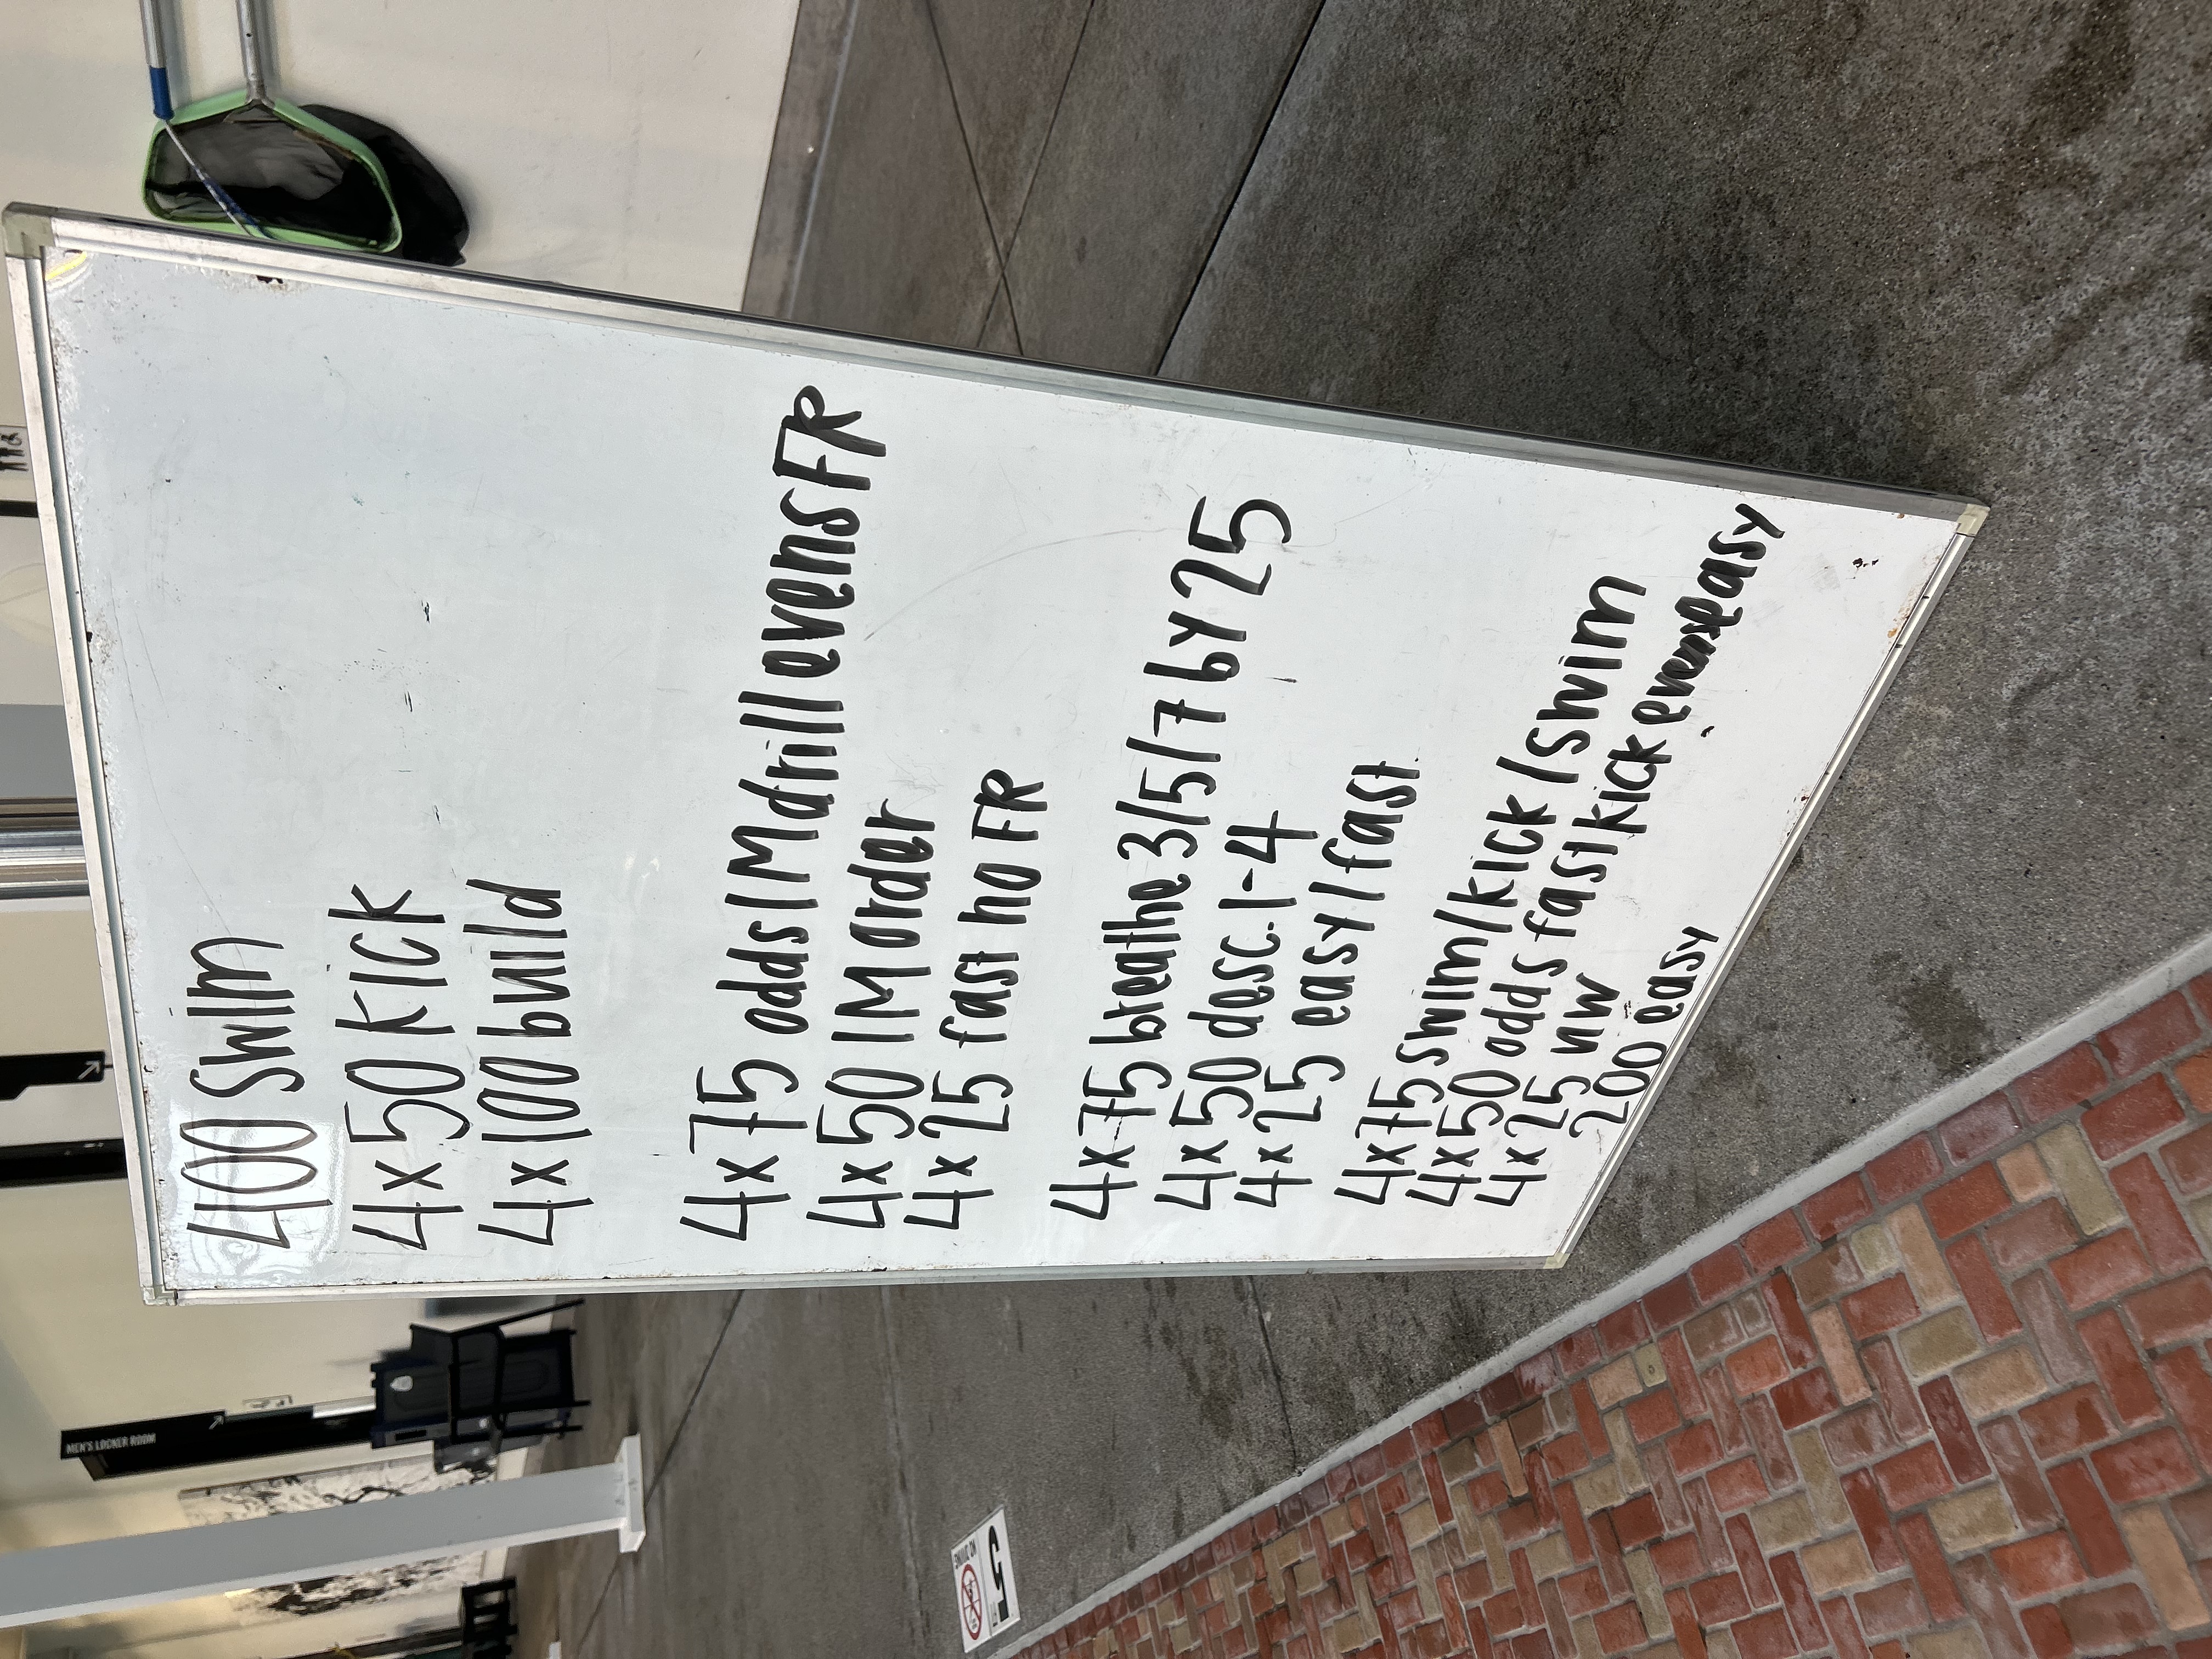 400 Swim
4x50 Kick
4x100 build
4x75 odds IM drill evens FR
4x50 IM order
4x25 fast no FR
4x75 breathe 3/5/7 by 25
4x50 desc. 1-4
4x25 easy/fast
4x75 swim/kick/swim
4x50 odds fast kick evens easy
4x25 nw
200 easy
MEN'S LOCKER ROOM
NO DIVING
5